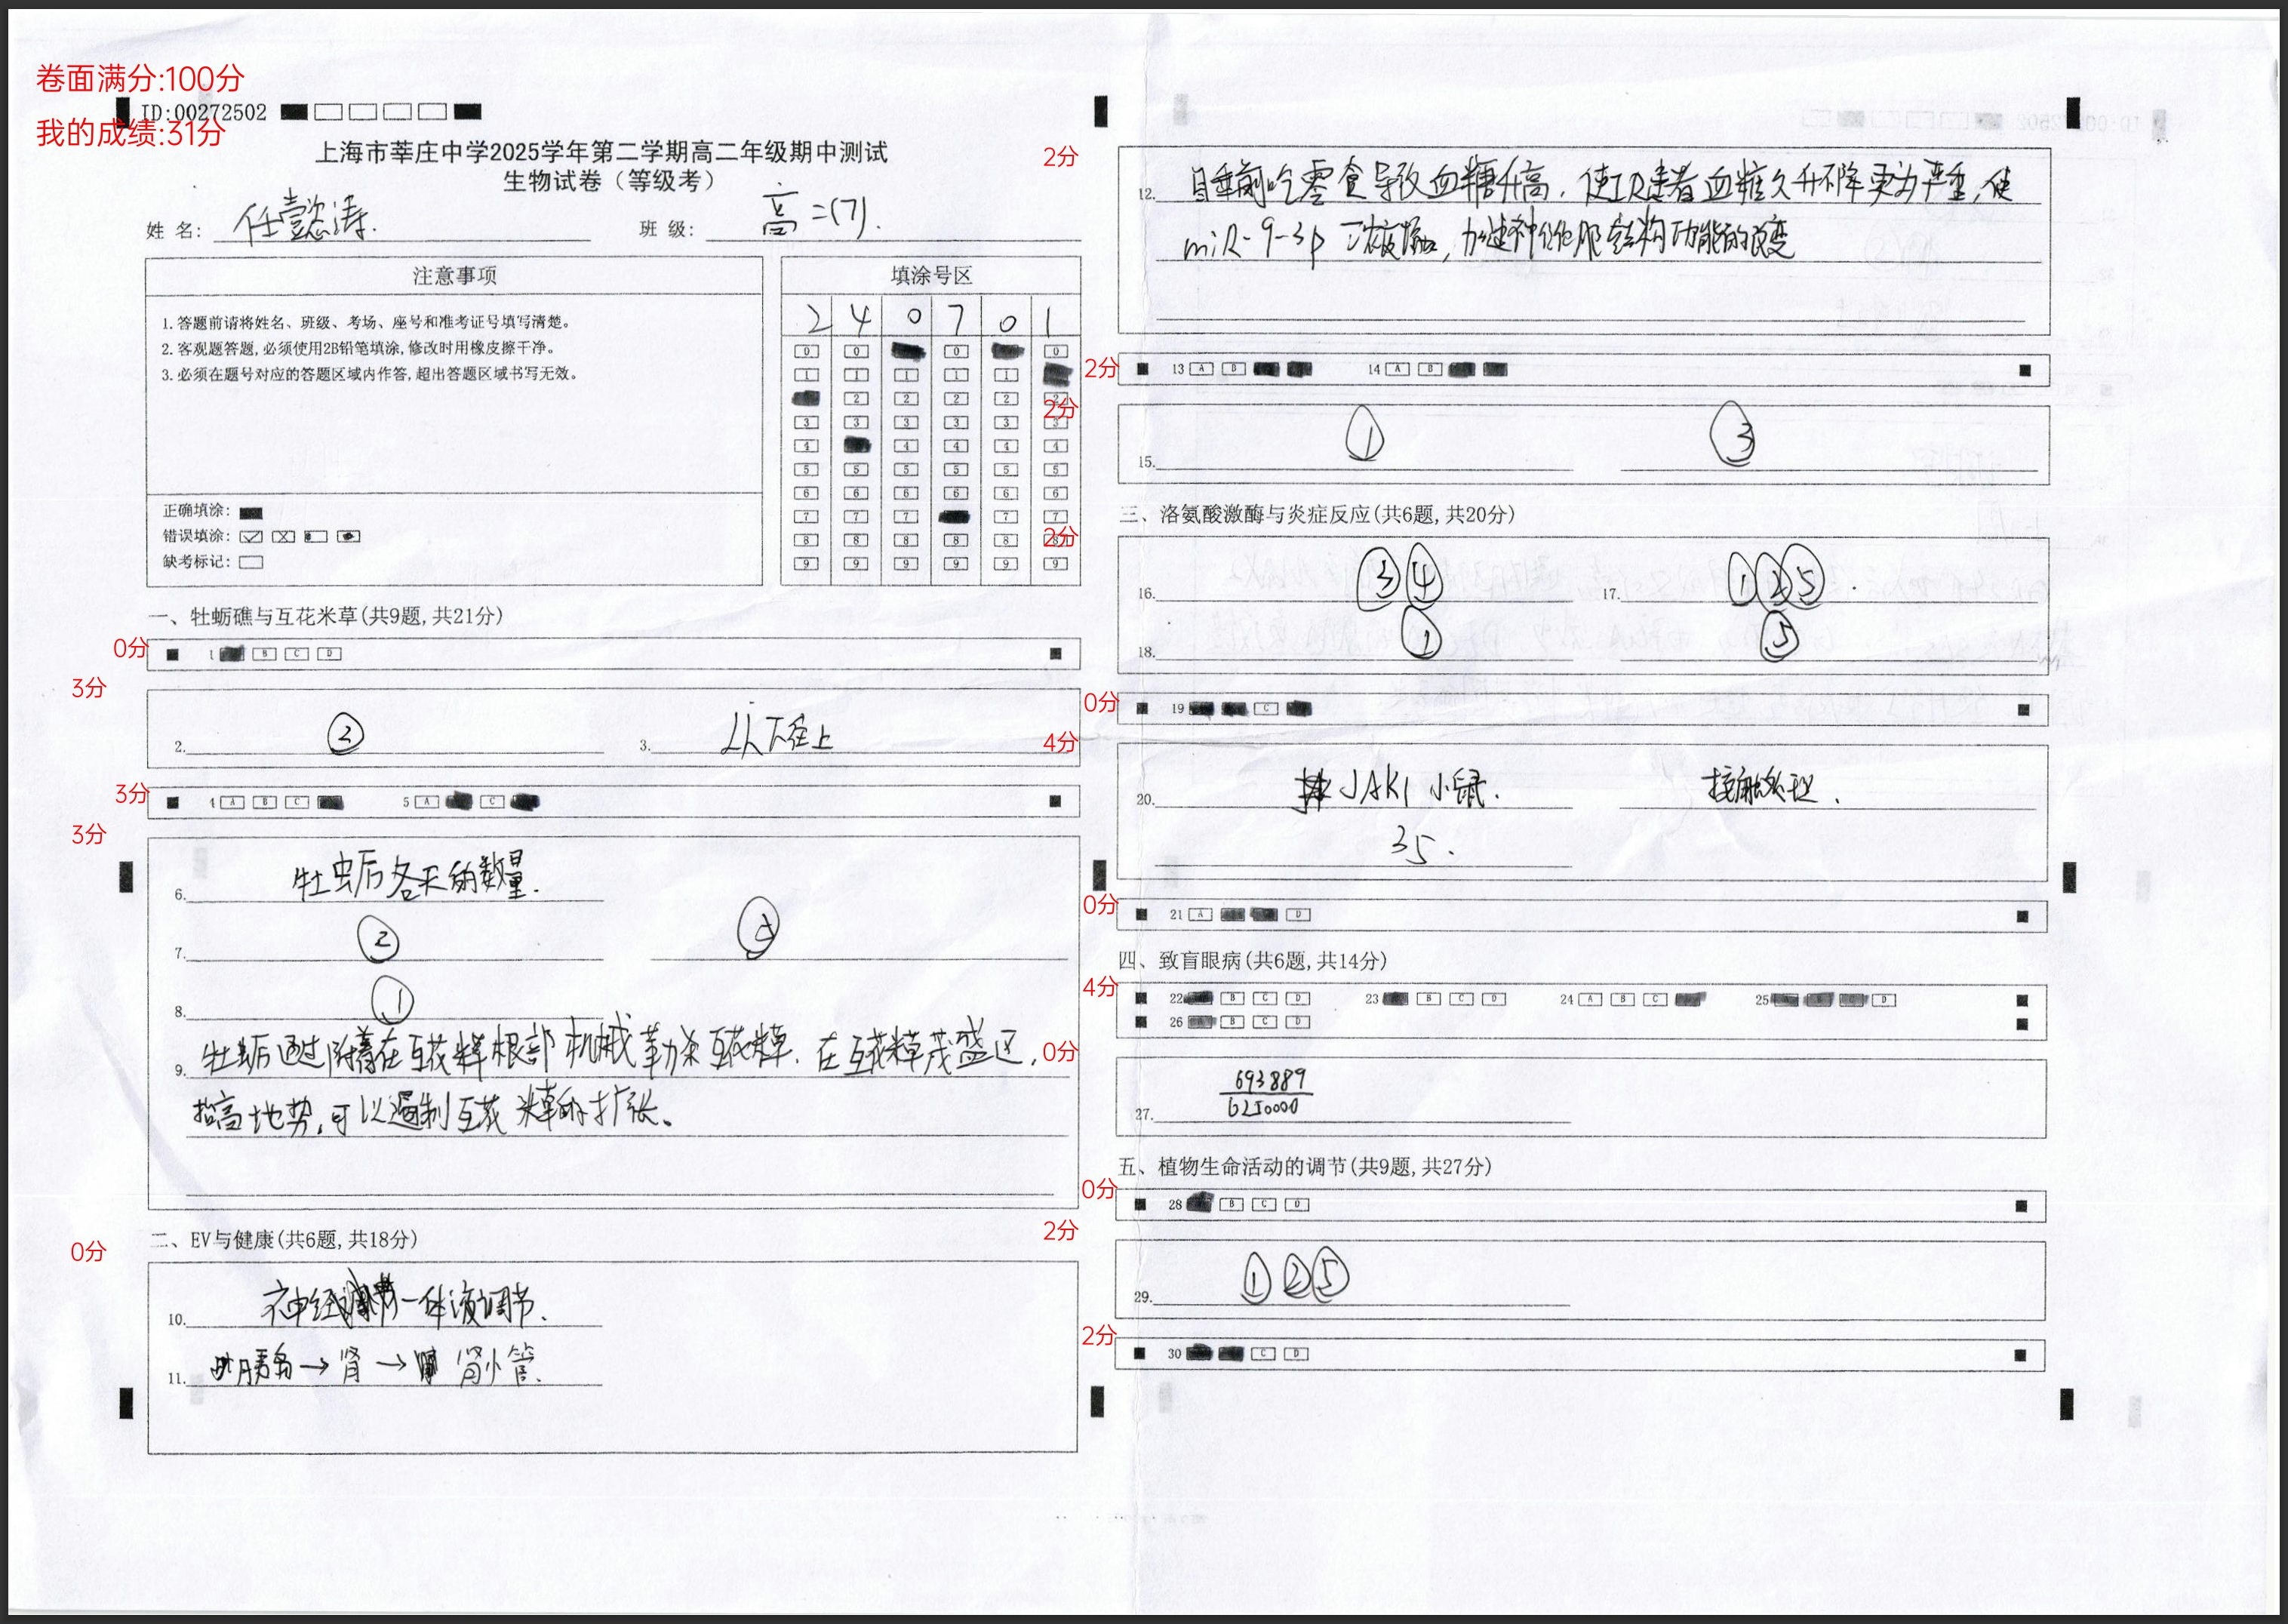 卷面满分:100分
ID:00272502
我的成绩:31分
上海市莘庄中学2025学年第二学期高二年级期中测试
生物试卷（等级考）
姓名: 任懿涛. 班级: 高二(7).
注意事项
1.答题前请将姓名、班级、考场、座号和准考证号填写清楚。
2.客观题答题,必须使用2B铅笔填涂,修改时用橡皮擦干净。
3.必须在题号对应的答题区域内作答,超出答题区域书写无效。
正确填涂:
错误填涂:
缺考标记:
填涂号区
2 4 0 7 0 1
0 0 0 0
1 1 1 1 1
2 2 2 2 2
3 3 3 3 3 3
4 4 4 4 4
5 5 5 5 5 5
6 6 6 6 6 6
7 7 7 7 7
8 8 8 8 8 8
9 9 9 9 9 9
一、牡蛎礁与互花米草(共9题,共21分)
0分
1 B C D
3分
2. ② 3. 从下往上
3分
4 A B C 5 A C
3分
6. 牡蛎各天的数量.
7. ②
8. ①
9. 牡蛎通过附着在互花米草根部机械勒杀互花米草.在互花米草茂盛区,
抬高地势,可以遏制互花米草的扩张。
二、EV与健康(共6题,共18分)
0分
10. 神经一体液调节.
11. 胰岛→肾→肾小管.
2分
12. 睡前吃零食导致血糖升高,使IR患者血糖久升不降更为严重,使
miR-9-3p 加速神经细胞结构功能的改变
2分
13 A B 14 A B
2分
15. ① ③
三、洛氨酸激酶与炎症反应(共6题,共20分)
2分
16. ③④ 17. ①②⑤.
18. ① ⑤
0分
19 C
4分
20. JAK1 小鼠.
35.
0分
21 A D
四、致盲眼病(共6题,共14分)
4分
22 B C D 23 B C D 24 A B C 25 D
26 B C D
0分
27. 693889/6250000
五、植物生命活动的调节(共9题,共27分)
0分
28 B C D
2分
29. ①②⑤
2分
30 C D